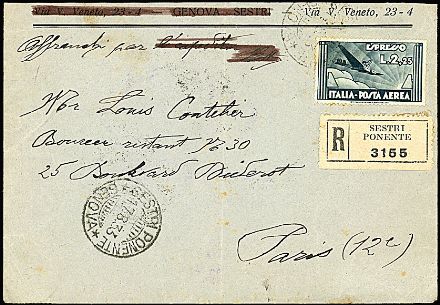 Via V. Veneto, 23 - 4 GENOVA - SESTRI Via V. Veneto, 23 - 4
Affranchi par
ESPRESSO
L. 2,25
ITALIA - POSTA AEREA
R
SESTRI
PONENTE
3155
Mr Louis Contelier
restant No 30
25 Boulevard Diderot
Paris (12e)
SESTRI PONENTE
GENOVA
17.8.33